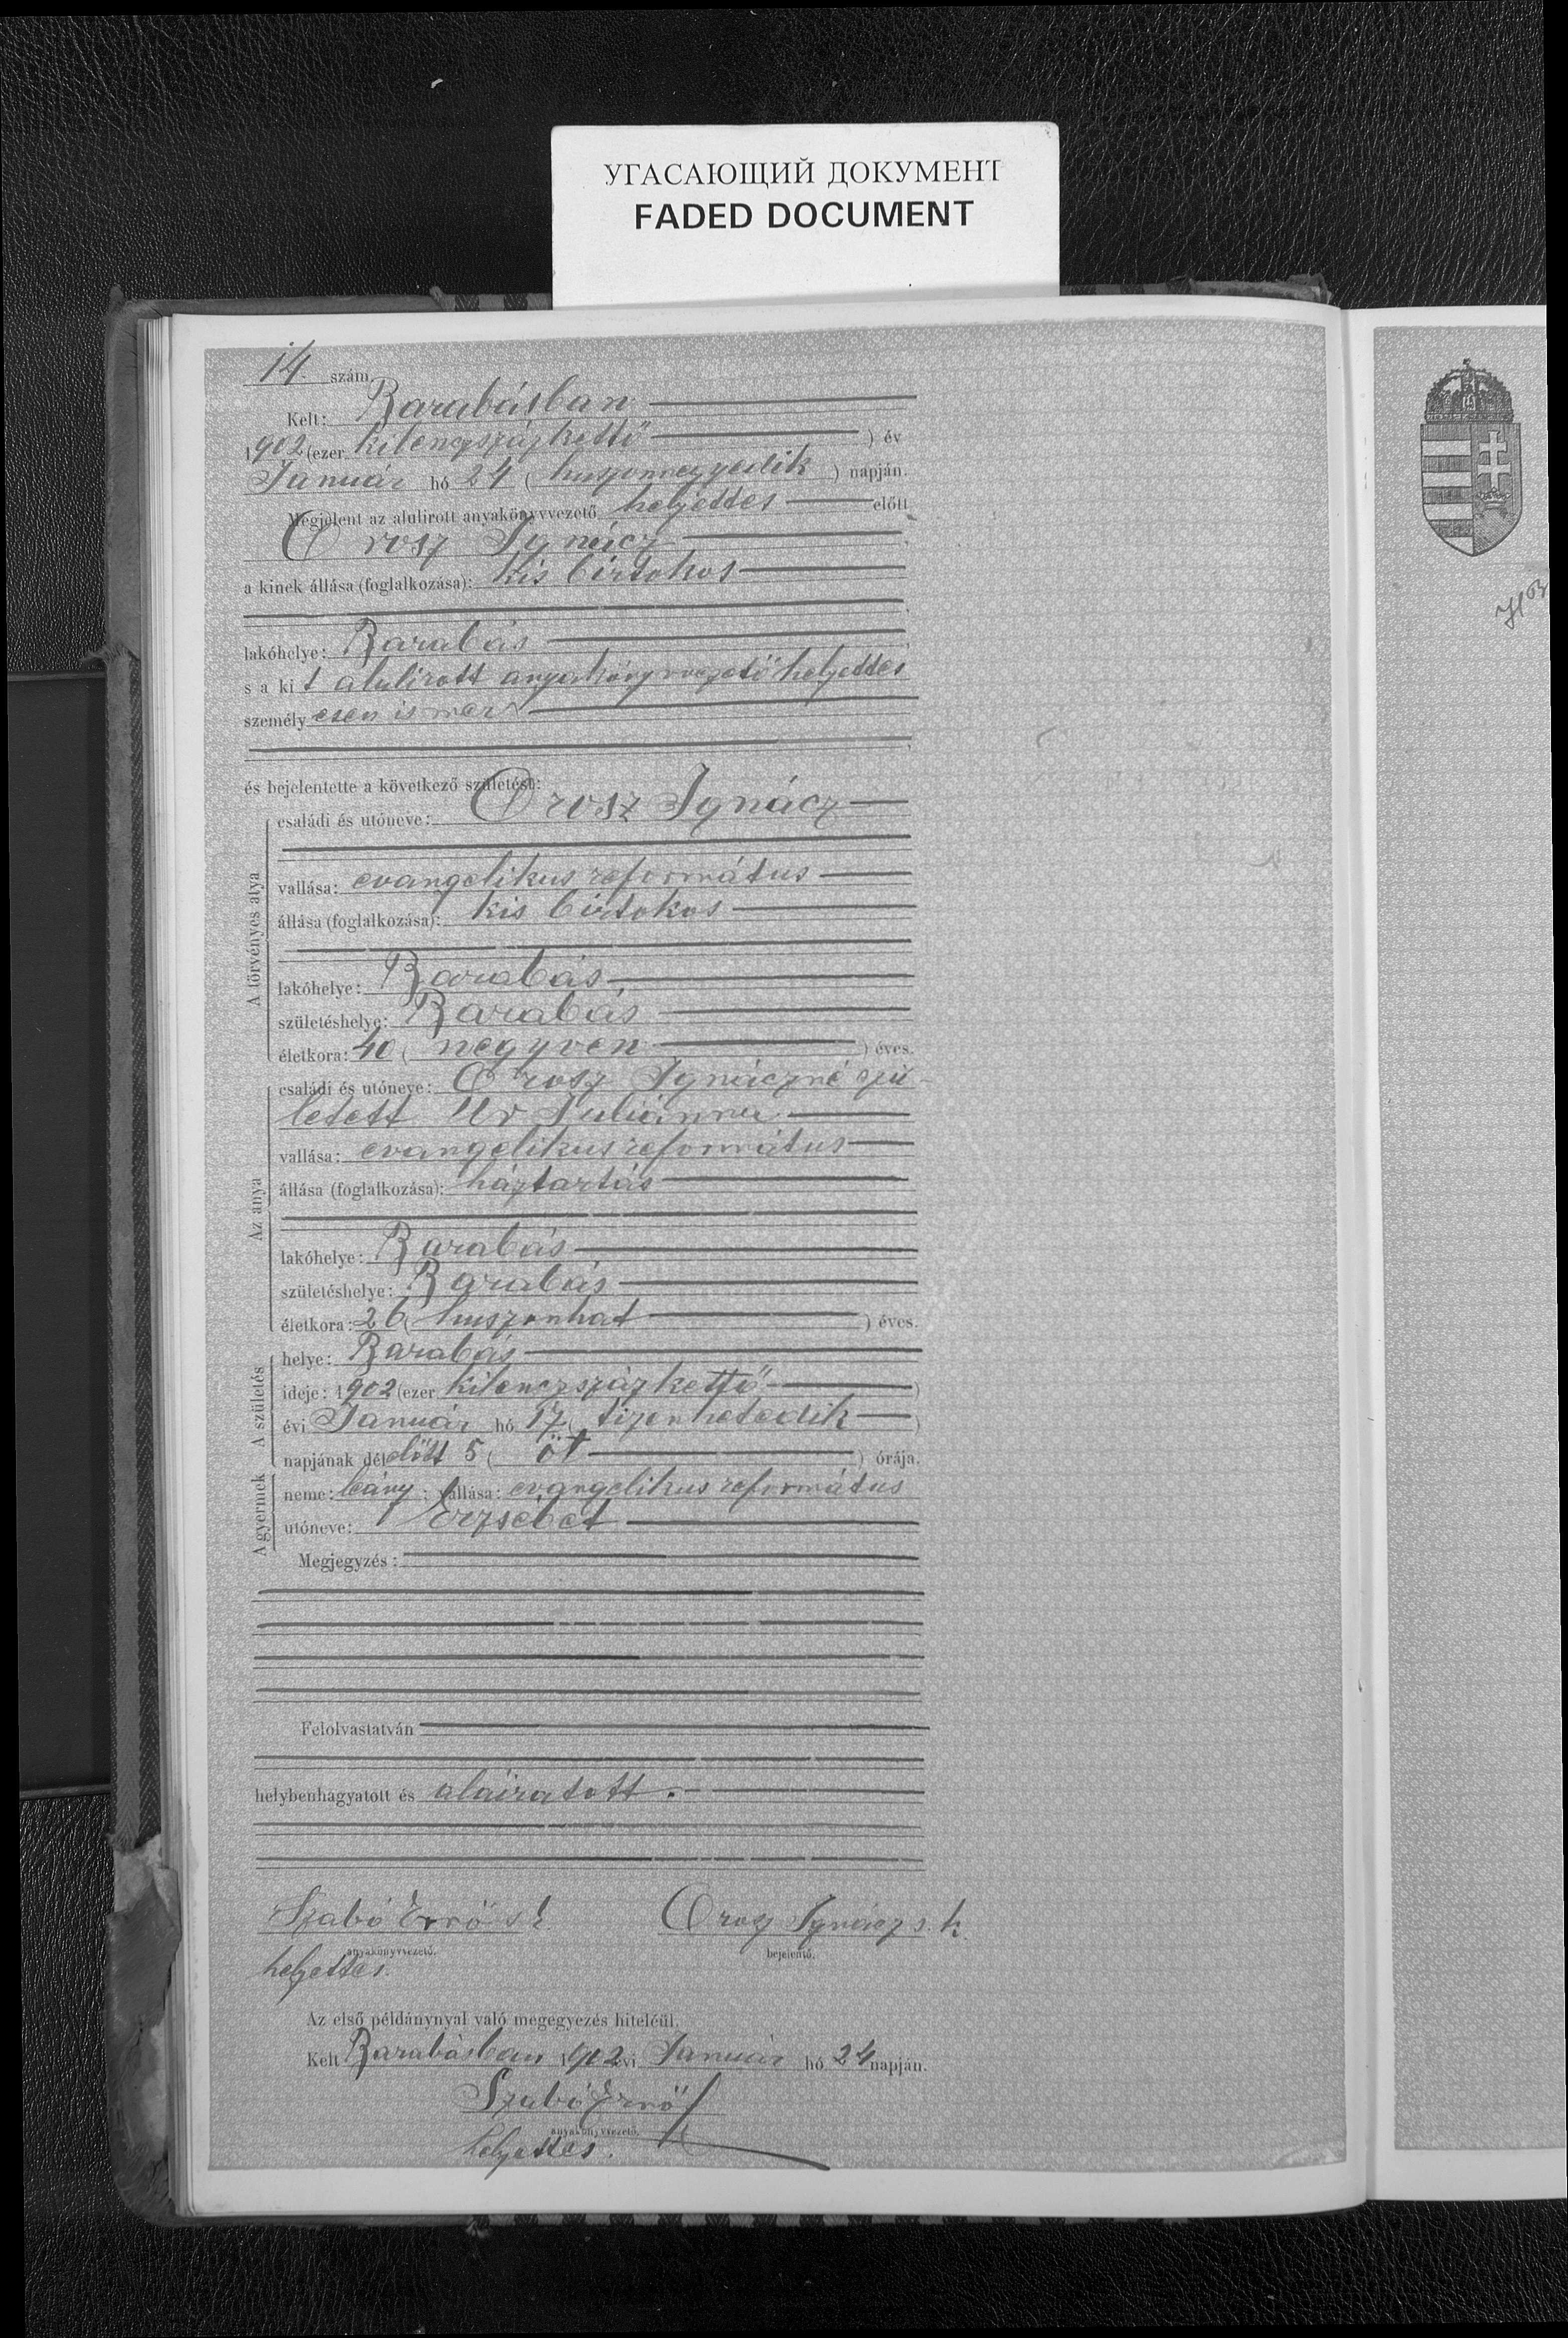 УГАСАЮЩИЙ ДОКУМЕНТ
FADED DOCUMENT
14. szám.
Kelt: Barabásban
1902 (ezer kilenczszázkettő ) év
Január hó 24 ( huszonnegyedik ) napján.
Megjelent az alulirott anyakönyvvezető helyettes előtt
Orosz Ignácz
a kinek állása (foglalkozása): kis birtokos
lakóhelye: Barabás
s a kit alulirott anyakönyvvezető helyettes
személyesen ismer
és bejelentette a következő születést:
A törvényes atya
családi és utóneve: Orosz Ignácz
vallása: evangelikus református
állása (foglalkozása): kis birtokos
lakóhelye: Barabás
születéshelye: Barabás
életkora: 40 ( negyven ) éves.
Az anya
családi és utóneve: Orosz Ignáczné szü-
letett Ur Juliánna
vallása: evangelikus református
állása (foglalkozása): háztartás
lakóhelye: Barabás
születéshelye: Barabás
életkora: 26 ( huszonhat ) éves.
A születés
helye: Barabás
ideje: 1902 (ezer kilenczszázkettő )
évi Január hó 17 ( tizenhetedik )
napjának délelőtt 5 ( öt ) órája.
A gyermek
neme: leány; vallása: evangelikus református
utóneve: Erzsébet
Megjegyzés:
Felolvastatván
helybenhagyatott és aláiratott.
Szabó Ernő s. k. Orosz Ignácz s. k.
anyakönyvvezető. bejelentő.
helyettes.
Az első példánynyal való megegyezés hiteléül.
Kelt Barabásban 1902 évi Január hó 24 napján.
Szabó Ernő
anyakönyvvezető.
helyettes.